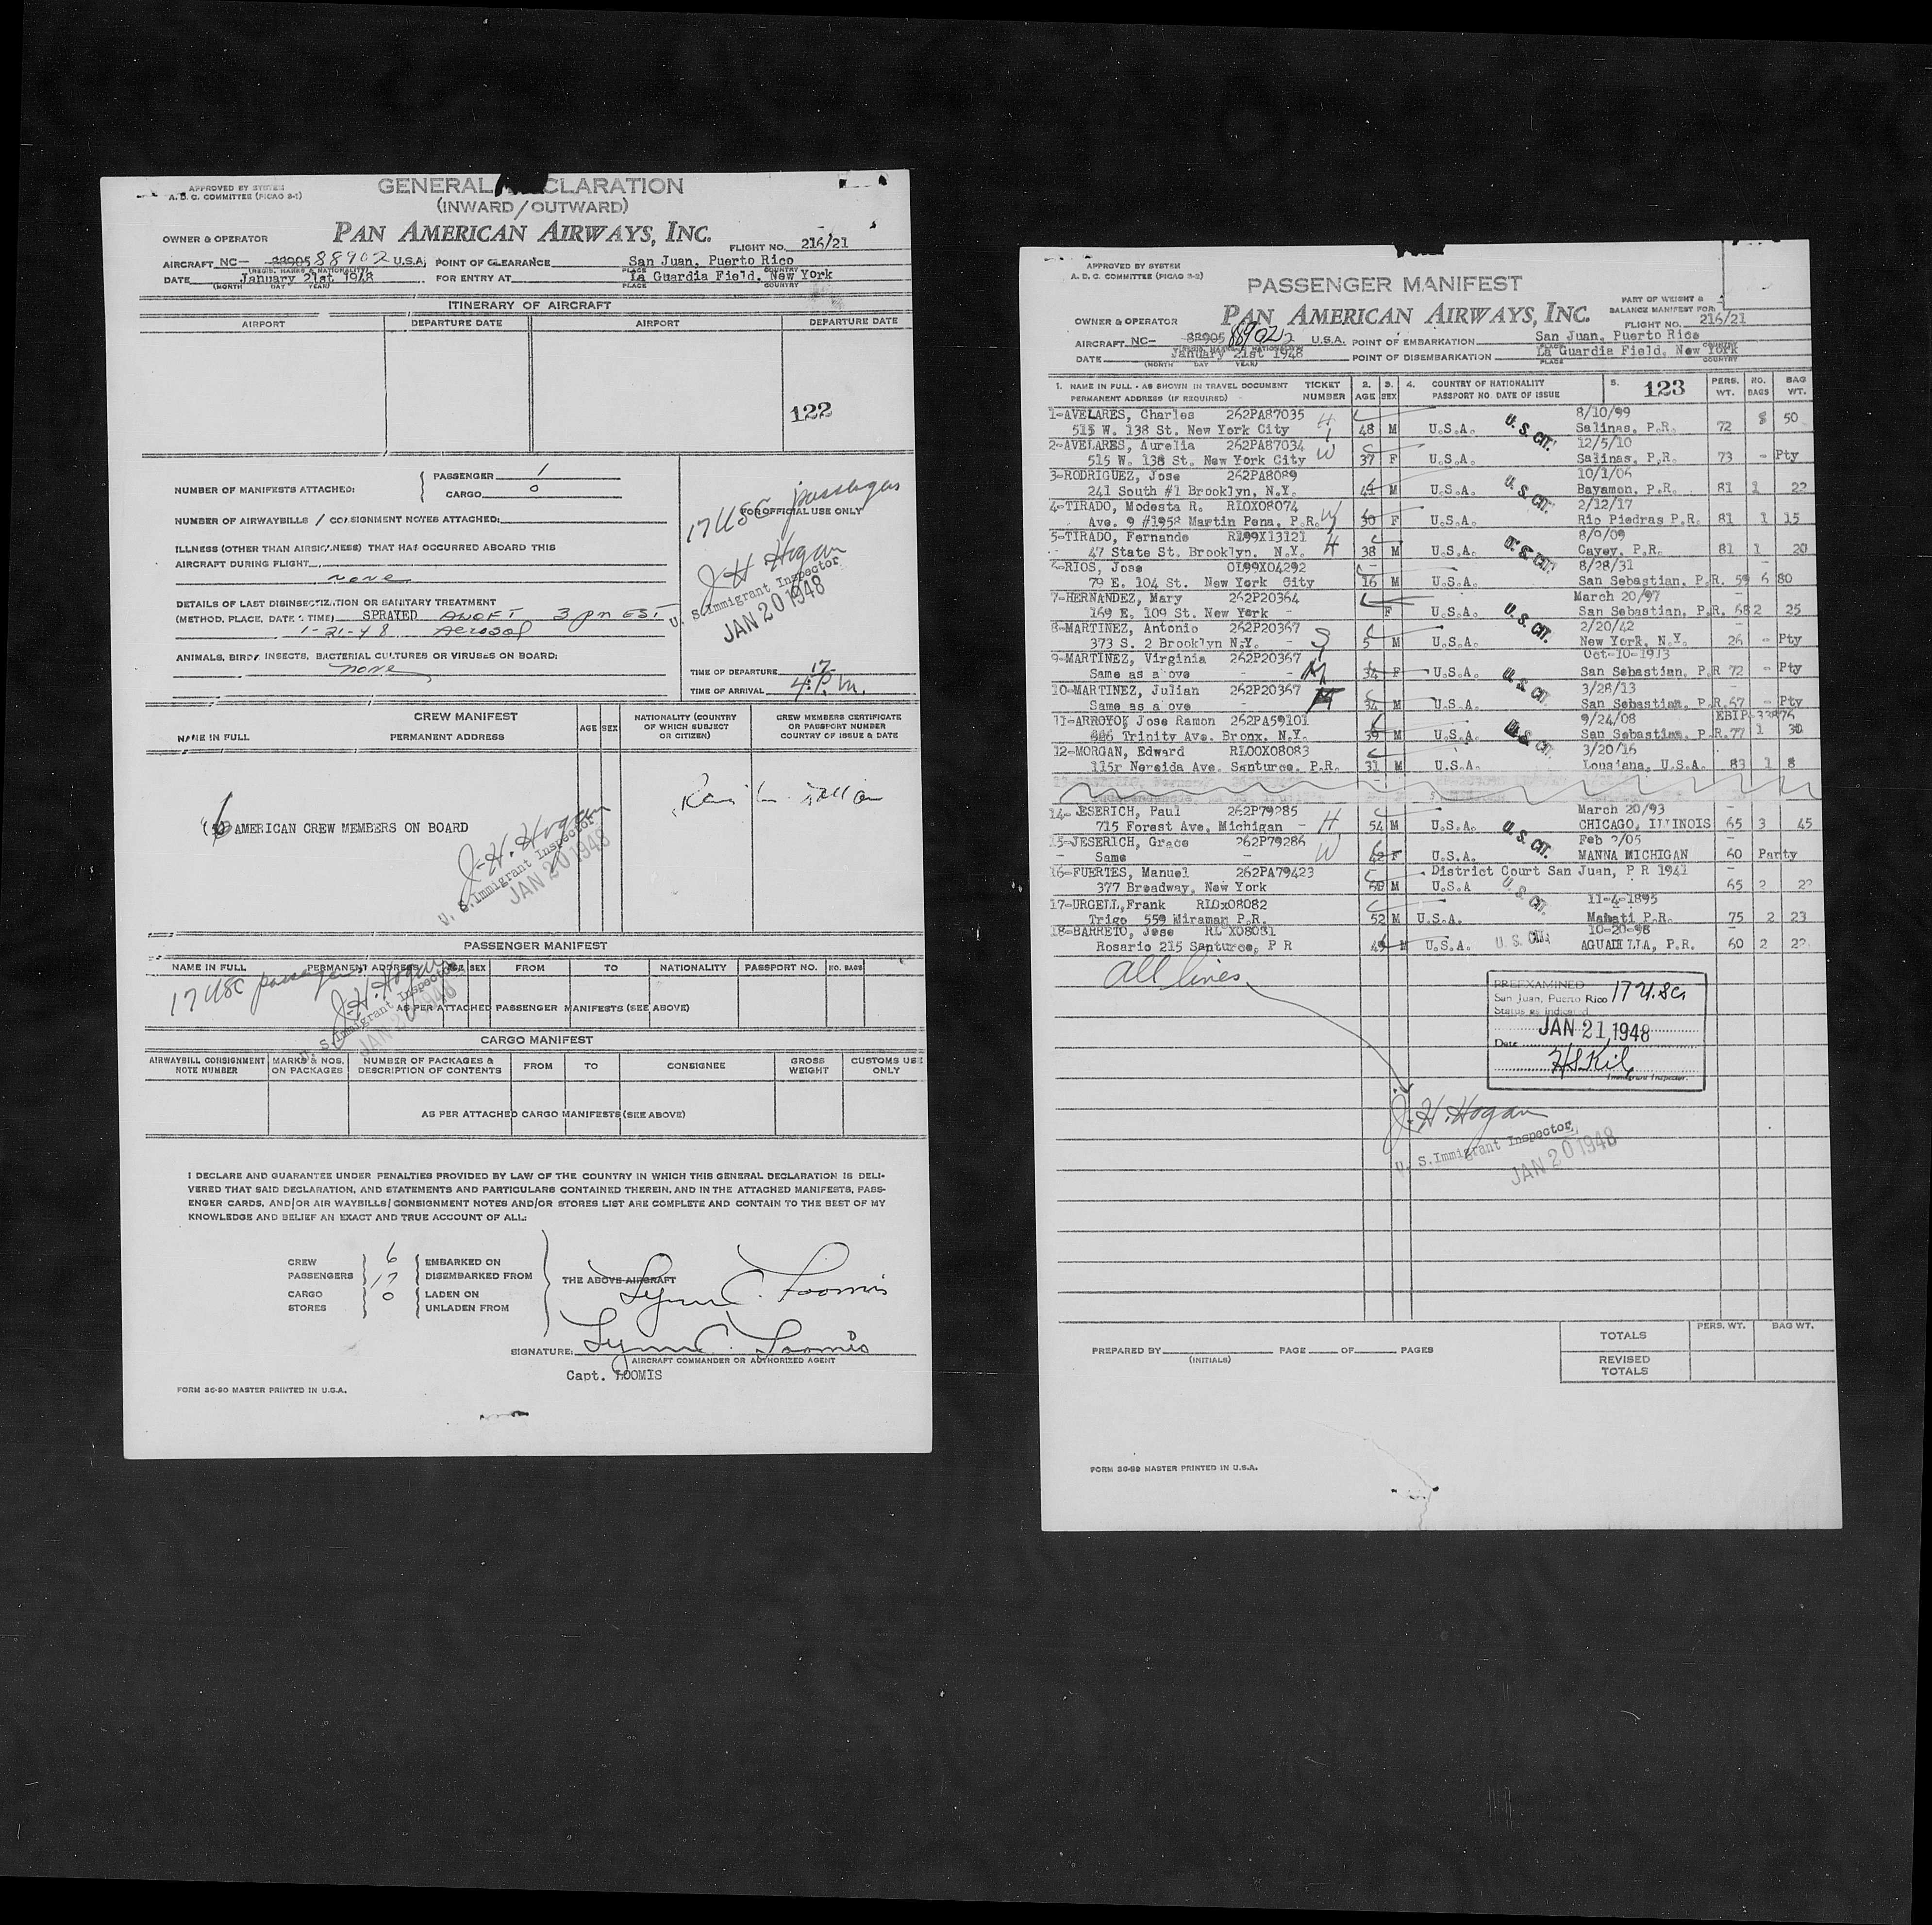 APPROVED BY SYSTEM
A. D. C. COMMITTEE (PICAO 2-1)
GENERAL CLARATION
(INWARD/OUTWARD)
PAN AMERICAN AIRWAYS, INC.
OWNER & OPERATOR
FLIGHT NO. 216/21
AIRCRAFT NC- 88905 88902 U.S.A. POINT OF CLEARANCE San Juan, Puerto Rico
(REGIS. MARKS & NATIONALITY) PLACE COUNTRY
DATE January 21st 1948 FOR ENTRY AT La Guardia Field, New York
(MONTH DAY YEAR) PLACE COUNTRY
ITINERARY OF AIRCRAFT
AIRPORT DEPARTURE DATE AIRPORT DEPARTURE DATE
122
NUMBER OF MANIFESTS ATTACHED: PASSENGER 1
CARGO 0
NUMBER OF AIRWAYBILLS / CONSIGNMENT NOTES ATTACHED:
ILLNESS (OTHER THAN AIRSICKNESS) THAT HAS OCCURRED ABOARD THIS
AIRCRAFT DURING FLIGHT
none
DETAILS OF LAST DISINSECTIZATION OR SANITARY TREATMENT
(METHOD, PLACE, DATE & TIME) SPRAYED 3 pm EST
1-21-48 Aerosol
ANIMALS, BIRDS, INSECTS, BACTERIAL CULTURES OR VIRUSES ON BOARD:
none
17 USC passengers
FOR OFFICIAL USE ONLY
J H Hogan
U. S. Immigrant Inspector
JAN 20 1948
TIME OF DEPARTURE
TIME OF ARRIVAL 4:17 P.m.
CREW MANIFEST
NAME IN FULL PERMANENT ADDRESS AGE SEX NATIONALITY (COUNTRY OF WHICH SUBJECT OR CITIZEN) CREW MEMBERS CERTIFICATE OR PASSPORT NUMBER COUNTRY OF ISSUE & DATE
(6) AMERICAN CREW MEMBERS ON BOARD
J. H. Hogan
U. S. Immigrant Inspector
JAN 20 1948
PASSENGER MANIFEST
NAME IN FULL PERMANENT ADDRESS AGE SEX FROM TO NATIONALITY PASSPORT NO. NO. BAGS
17 USC passengers
J. H. Hogan
U. S. Immigrant Inspector
JAN 20 1948
AS PER ATTACHED PASSENGER MANIFESTS (SEE ABOVE)
CARGO MANIFEST
AIRWAYBILL CONSIGNMENT NOTE NUMBER MARKS & NOS. ON PACKAGES NUMBER OF PACKAGES & DESCRIPTION OF CONTENTS FROM TO CONSIGNEE GROSS WEIGHT CUSTOMS USE ONLY
AS PER ATTACHED CARGO MANIFESTS (SEE ABOVE)
I DECLARE AND GUARANTEE UNDER PENALTIES PROVIDED BY LAW OF THE COUNTRY IN WHICH THIS GENERAL DECLARATION IS DELI-
VERED THAT SAID DECLARATION, AND STATEMENTS AND PARTICULARS CONTAINED THEREIN, AND IN THE ATTACHED MANIFESTS, PASS-
ENGER CARDS, AND/OR AIR WAYBILLS/CONSIGNMENT NOTES AND/OR STORES LIST ARE COMPLETE AND CONTAIN TO THE BEST OF MY
KNOWLEDGE AND BELIEF AN EXACT AND TRUE ACCOUNT OF ALL:
CREW 6 EMBARKED ON
PASSENGERS 17 DISEMBARKED FROM THE ABOVE AIRCRAFT
CARGO 0 LADEN ON
STORES UNLADEN FROM
Lynn C. Loomis
SIGNATURE: Lynn C. Loomis
AIRCRAFT COMMANDER OR AUTHORIZED AGENT
Capt. LOOMIS
FORM 36-90 MASTER PRINTED IN U.S.A.
APPROVED BY SYSTEM
A. D. C. COMMITTEE (PICAO 2-2)
PASSENGER MANIFEST
PAN AMERICAN AIRWAYS, INC.
PART OF WEIGHT &
BALANCE MANIFEST FOR:
OWNER & OPERATOR
FLIGHT NO. 216/21
AIRCRAFT NC- 88905 88902 U.S.A. POINT OF EMBARKATION San Juan, Puerto Rico
DATE January 21st 1948 POINT OF DISEMBARKATION La Guardia Field, New York
(MONTH DAY YEAR) PLACE COUNTRY
1. NAME IN FULL - AS SHOWN IN TRAVEL DOCUMENT TICKET 2. 3. 4. COUNTRY OF NATIONALITY 5. 123 PERS. NO. BAG
PERMANENT ADDRESS (IF REQUIRED) NUMBER AGE SEX PASSPORT NO. DATE OF ISSUE WT. BAGS WT.
1-AVELARES, Charles 262PA87035 8/10/99
515 W. 138 St. New York City H 48 M U.S.A. U. S. CIT. Salinas, P.R. 72 8 50
2-AVELARES, Aurelia 262PA87034 12/5/10
515 W. 138 St. New York City W 37 F U.S.A. Salinas, P.R. 73 - Pty
3-RODRIGUEZ, Jose 262PA8089 10/1/06
241 South #1 Brooklyn, N.Y. 41 M U.S.A. U. S. CIT. Bayamon, P.R. 81 1 22
4-TIRADO, Modesta R. RLOX08074 2/12/17
Ave. 9 #1958 Martin Pena, P.R. W 30 F U.S.A. Rio Piedras P.R. 81 1 15
5-TIRADO, Fernando RL99X13121 8/9/09
47 State St. Brooklyn. N.Y. H 38 M U.S.A. U. S. CIT. Cayey, P.R. 81 1 20
6-RIOS, Jose OL99X04292 8/28/31
79 E. 104 St. New York City 16 M U.S.A. San Sebastian, P.R. 59 6 80
7-HERNANDEZ, Mary 262P20364 March 20/97
169 E. 109 St. New York F U.S.A. U. S. CIT. San Sebastian, P.R. 68 2 25
8-MARTINEZ, Antonio 262P20367 2/20/42
373 S. 2 Brooklyn N.Y. S 5 M U.S.A. U. S. CIT. New York, N.Y. 26 - Pty
9-MARTINEZ, Virginia 262P20367 Oct-10-1913
Same as a ove 34 F U.S.A. U. S. CIT. San Sebastian, P.R 72 - Pty
10-MARTINEZ, Julian 262P20367 3/28/13
Same as a ove 34 M U.S.A. San Sebastian, P.R. 67 - Pty
11-ARROYO, Jose Ramon 262PA59101 9/24/08 EBIP-33876
Trinity Ave. Bronx. N.Y. 39 M U.S.A. U. S. CIT. San Sebastian, P.R. 77 1 30
12-MORGAN, Edward RLOOX08083 3/20/16
115r Nereida Ave. Santurce, P.R. 31 M U.S.A. Lousiana, U.S.A. 83 1 8
14- JESERICH, Paul 262P79285 March 20/93
715 Forest Ave, Michigan - H 54 M U.S.A. U. S. CIT. CHICAGO, ILLINOIS 65 3 45
15-JESERICH, Grace 262P79286 Feb 2/05
Same W 42 F U.S.A. MANNA MICHIGAN 60 Party
16-FUERTES, Manuel 262PA79423 District Court San Juan, P R 1941
377 Broadway, New York 50 M U.S.A U. S. CIT. 65 2 22
17-URGELL,Frank RLOx08082 11-4-1895
Trigo 559 Miramar P.R. 52 M U.S.A. Manati P.R. 75 2 23
18-BARRETO, Jose RL X08031 10-20-98
Rosario 215 Santurce, P R 49 M U.S.A. U. S. CIT. AGUADILLA, P.R. 60 2 22
All lines
PREEXAMINED
San Juan, Puerto Rico 17 U.S.C.
Status as indicated
JAN 21 1948
Date
Immigrant Inspector.
J. H. Hogan
U. S. Immigrant Inspector
JAN 20 1948
PERS. WT. BAG WT.
TOTALS
PREPARED BY (INITIALS) PAGE OF PAGES
REVISED TOTALS
FORM 36-89 MASTER PRINTED IN U.S.A.